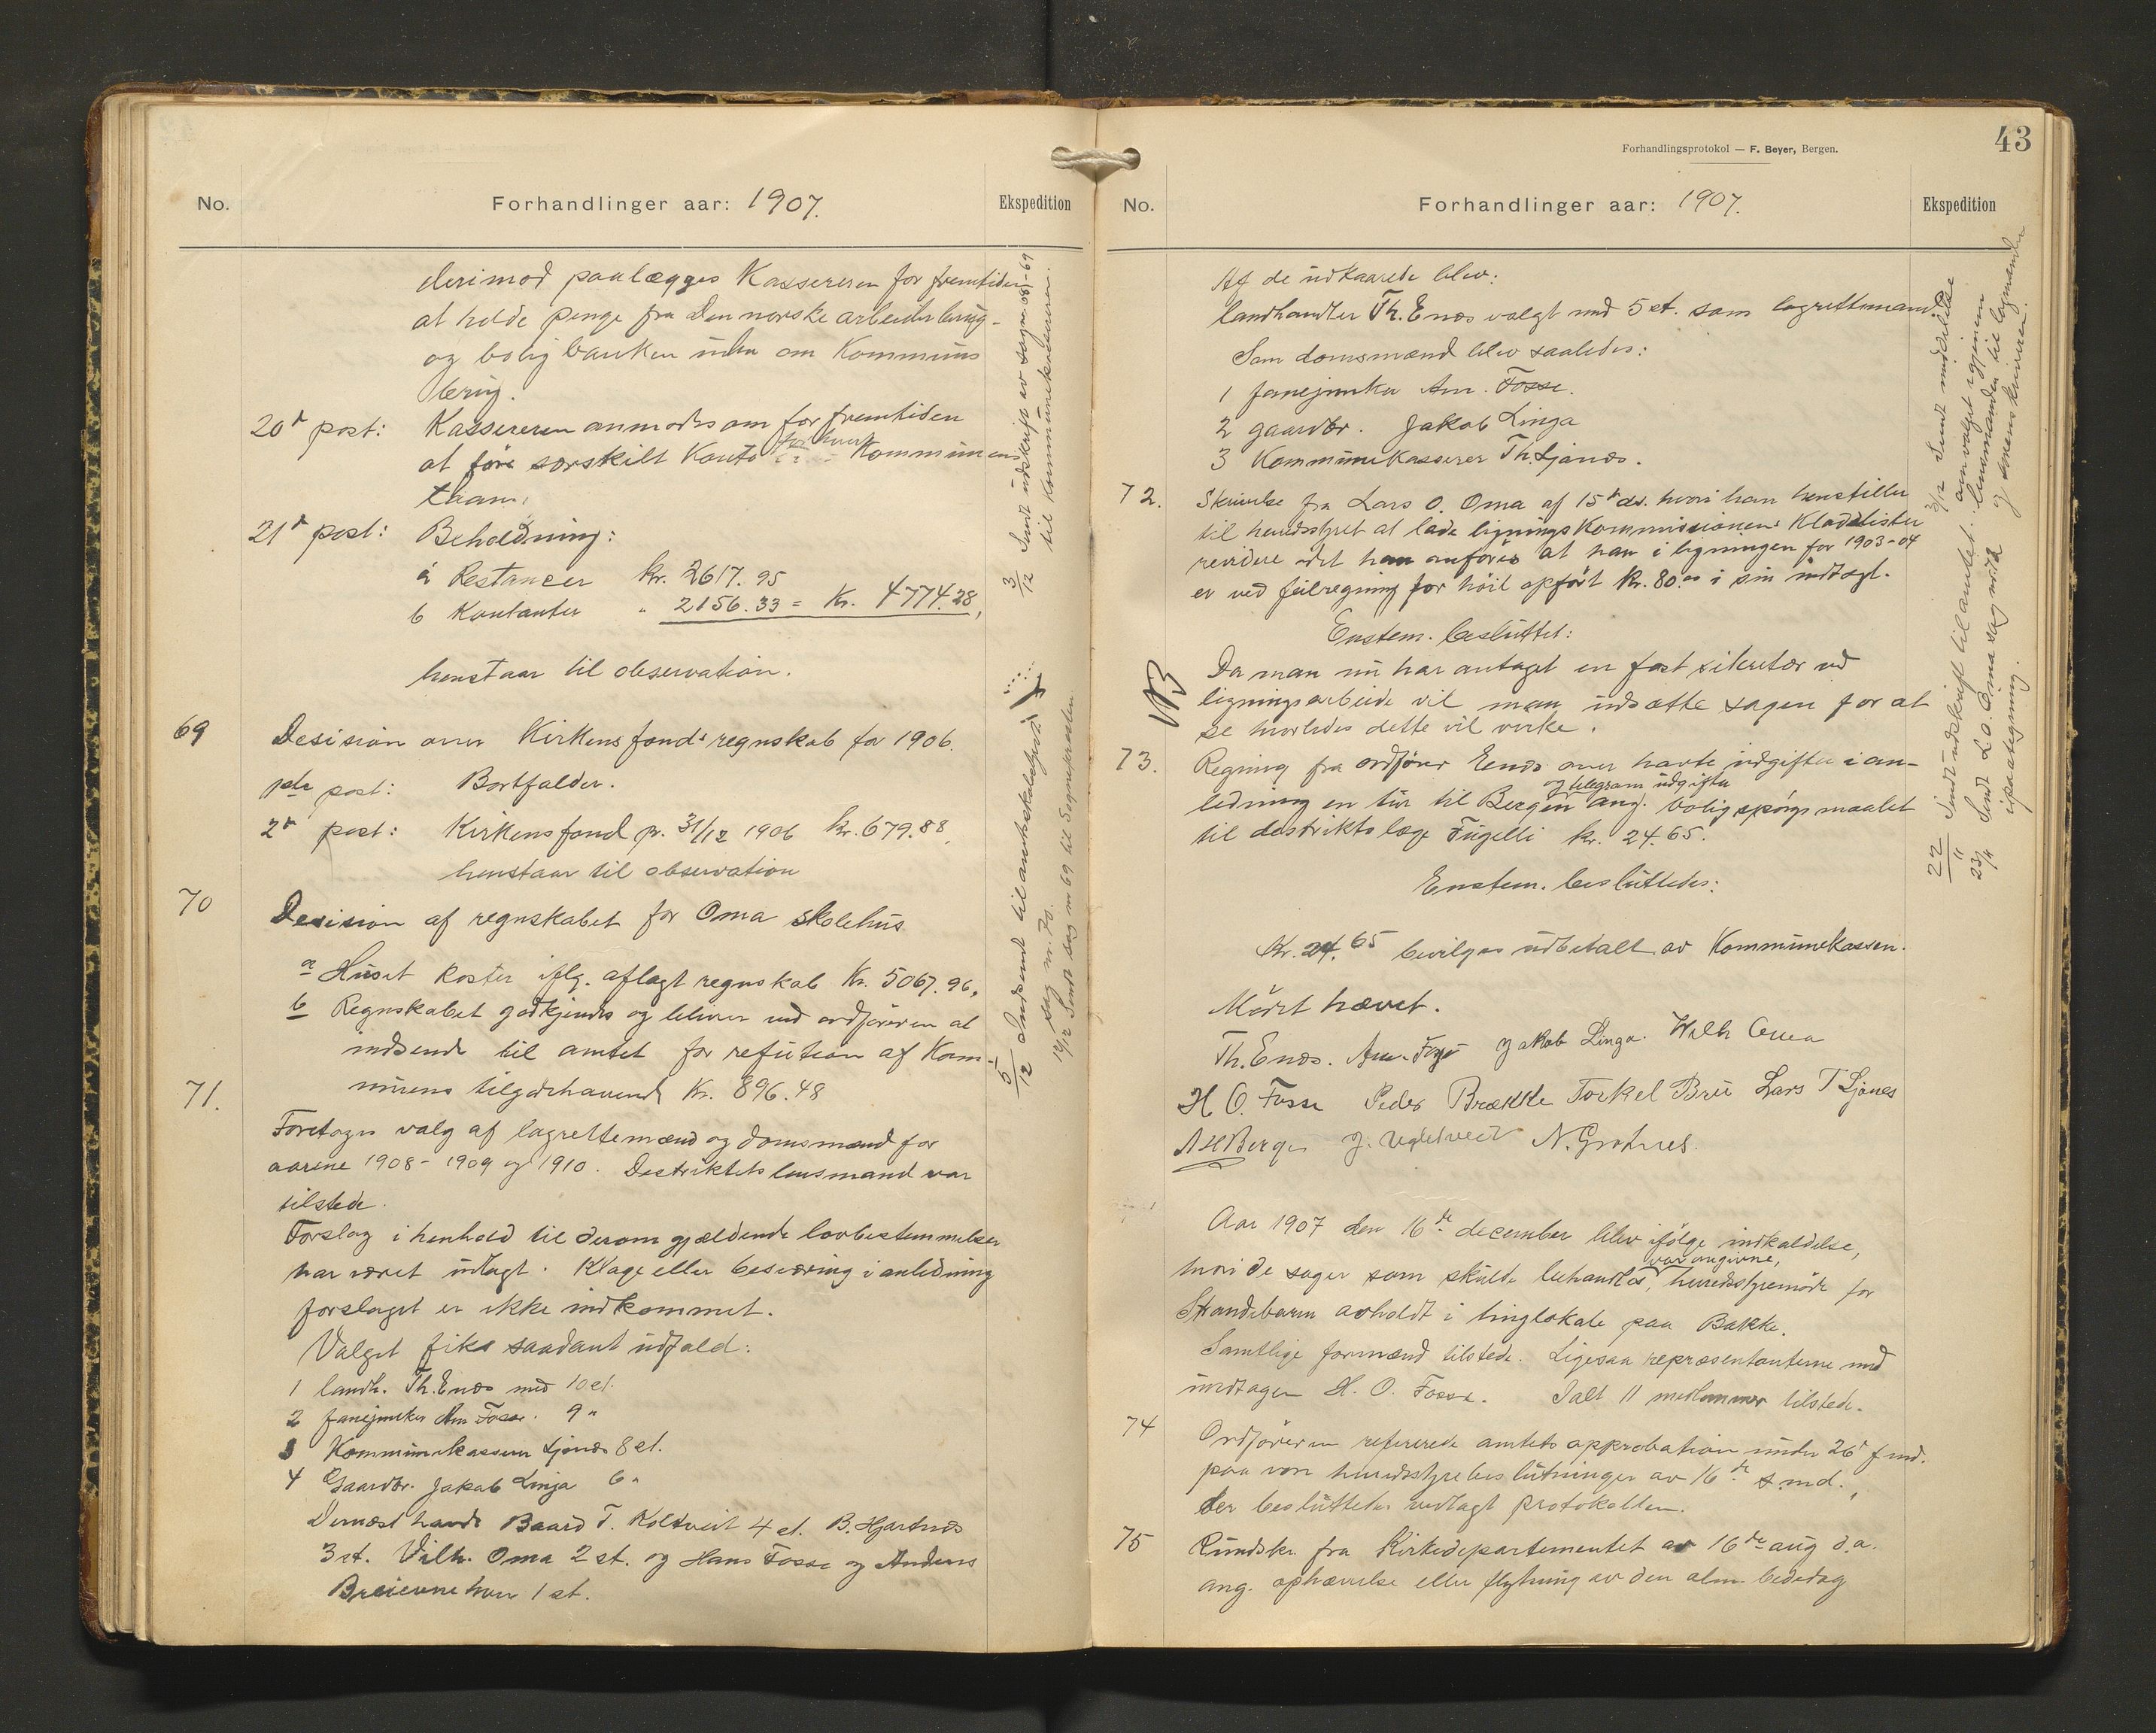 No.
Forhandlinger aar: 1907.
Ekspedition
derimod paalægges Kassereren for fremtiden
at holde penge fra Den norske arbeiderbrug-
og boligbanken uden om Kommunens
brug.
20de post: Kassereren anmodes om for fremtiden
at føre særskilt Konto for hvert Kommunens
laan.
21de post: Beholdning:
a Restancer kr. 2617.95
b Kontanter " 2156.33 = Kr. 4774.28,
henstaar til observation.
69 Desision over Kirkens fonds regnskab for 1906.
1ste post: Bortfalder.
2de post: Kirkens fond pr. 31/12 1906 kr. 679.88,
henstaar til observation
70 Desision af regnskabet for Oma skolehus
a Huset koster iflg. aflagt regnskab Kr. 5067.96,
b Regnskabet godkjendes og bliver ved ordføreren at
indsende til amtet for refution af Kom-
munens tilgodehavende Kr. 896.48
71. Foretoges valg af lagrettemænd og domsmænd for
aarene 1908 - 1909 og 1910. Destriktets lensmand var
tilstede.
Forslag i henhold til derom gjældende lovbestemmelser
har været udlagt. Klage eller besværing i anledning
forslaget er ikke indkommet.
Valget fik saadant udfald:
1 landh. Th. Enæs med 10 st.
2 fanejunker Am Fosse. 9 "
3 Kommunekasserer Ljonæs 8 st.
4 Gaardbr. Jakob Linga 6 "
Dernæst havde Baard T. Koldveit 4 st. B. Hjartnæs
3 st. Vilh. Oma 2 st. og Hans Fosse og Anders
Breievne hver 1 st.
3/12 Sendt udskrift av sagne 68-69
til kommunekassereren.
5/12 Indsend til amtskoledypot
sag nr. 70.
14/12 Sendt sag nr 69 til Sognepresten
Forhandlingsprotokol — F. Beyer, Bergen.
43
No.
Forhandlinger aar: 1907.
Ekspedition
Af de udkaarede blev:
landhandler Th. Enæs valgt med 5 st. som lagrettemand.
Som domsmænd blev saaledes:
1 fanejunker Am. Fosse.
2 gaardbr. Jakob Linga
3 Kommunekasserer Th. Ljonæs.
72. Skrivelse fra Lars O. Oma af 15de ds. hvori han henstiller
til herredsstyret at lade ligningskommissionens Kladdelister
revidere idet han anfører at han i ligningen for 1903-04
er ved feilregning for høit opført kr. 80 00 i sin indtægt.
Enstem. besluttet:
NB Da man nu har antaget en fast sekretær ved
ligningsarbeide vil man udsætte sagen for at
se hvorledes dette vil virke.
73. Regning fra ordfører Enæs over havte udgifter i an-
ledning en tur til Bergen og telegram udgifter ang. boligspørgsmaalet
til destriktslæge Fugelli kr. 24.65.
Enstem. besluttedes:
Kr. 24.65 bevilges udbetalt av Kommunekassen.
Mødet hævet.
Th. Enæs. Am. Fosse Jakob Linga. Wilh Oma
H O. Fosse Peder Brække Torkel Brue Lars T Ljones
N. Grotnes.
Aar 1907 den 16de december blev ifølge indkaldelse,
hvori de sager som skulde behandles var angivne, herredsstyremøde for
Strandebarm avholdt i tinglokale paa Bakke.
Samtlige formænd tilstede. Ligesaa repræsentanterne med
undtagen H. O. Fosse. Ialt 11 medlemmer tilstede.
74 Ordføreren refererede amtets approbation under 26de f.md.
paa von herredsstyrebeslutninger av 16de s.md.,
der besluttedes vedlagt protokollen.
75 Rundskr. fra Kirkedepartementet av 16de aug d.a.
ang. ophævelse eller flytning av den alm. bededag
3/12 Sendt meddelelse
om valget igjennem
lensmanden til lagmanden
og sorenskriveren.
22/11 Sendt udskrift til amtet.
23/11 Sendt L. O. Oma sag no 72
ipaategning.